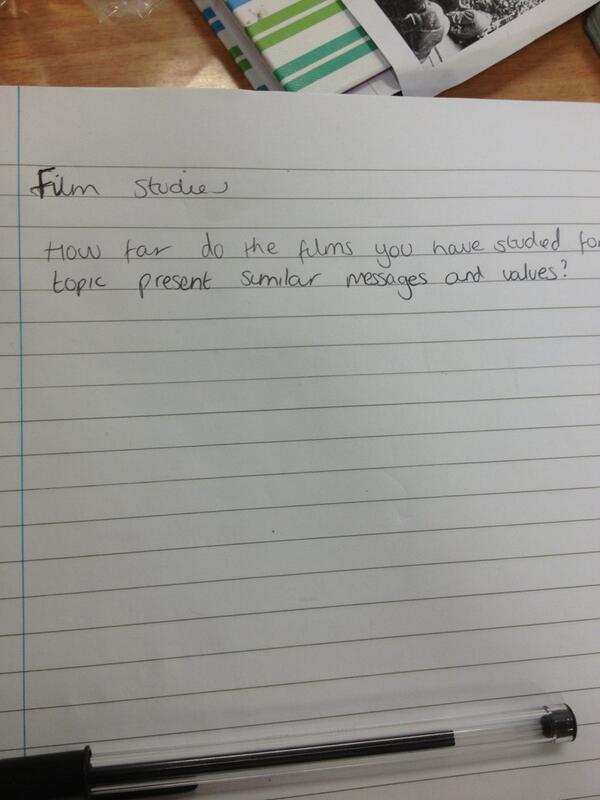 Film Studies
How far do the films you have studied for
topic present similar messages and values?